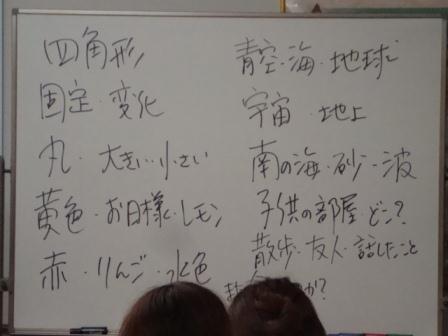 四角形
固定・変化
丸・大きい・小さい
黄色・お日様・レモン
赤・りんご・水色
青空・海・地球
宇宙・地上
南の海・砂・波
子供の部屋どこ?
散歩・友人・話したこと
か?